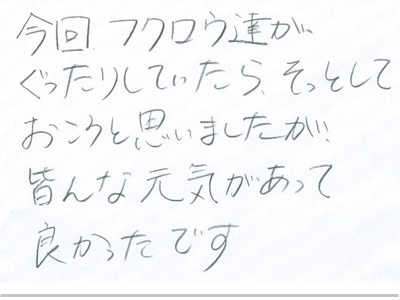 今回、フクロウ達が、
ぐったりしていたら、そっとして
おこうと思いましたが、
皆んな元気があって
良かったです